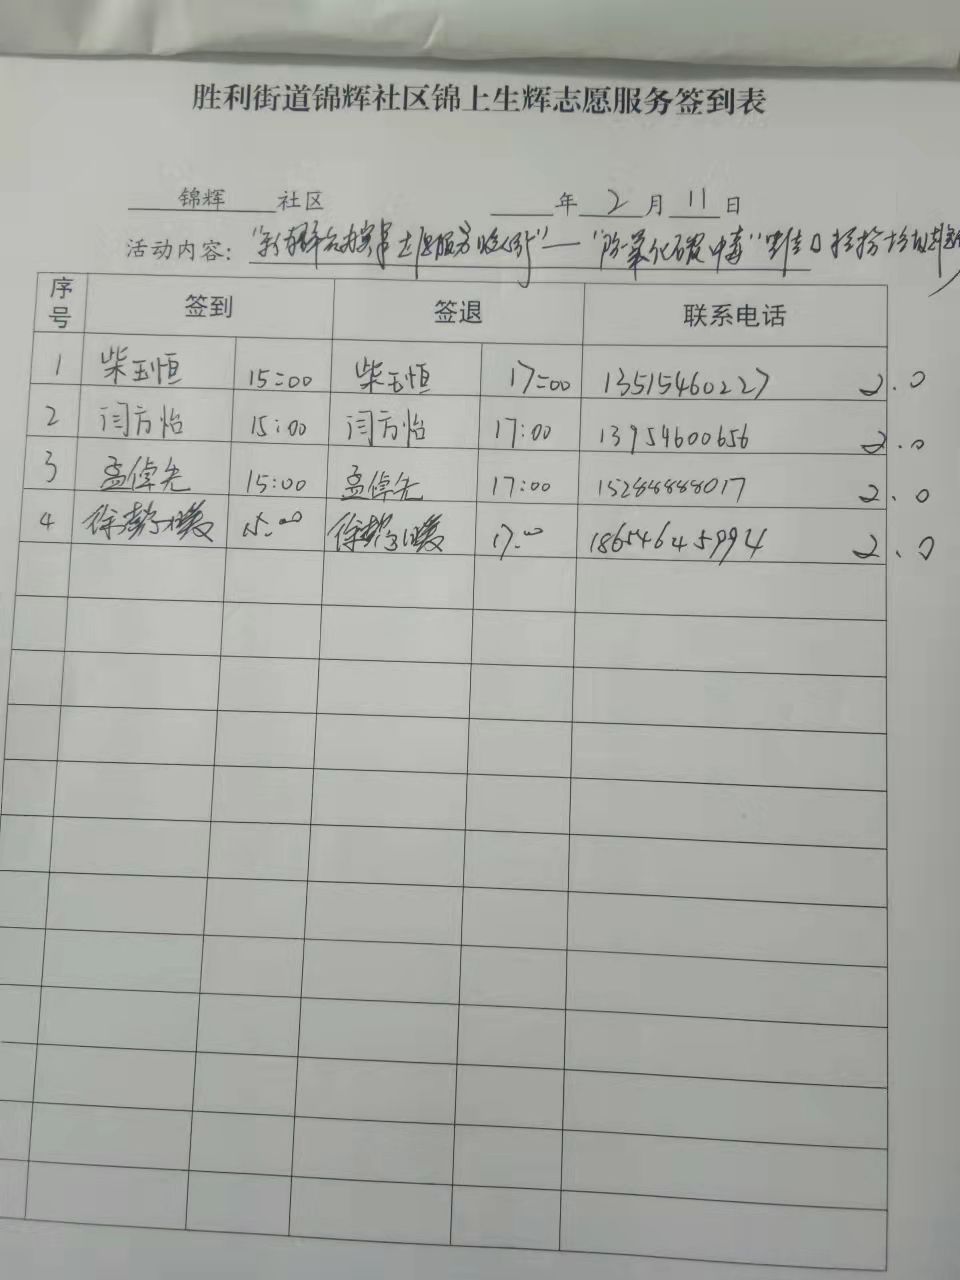 胜利街道锦辉社区锦上生辉志愿服务签到表
锦辉 社区 年 2 月 11 日
活动内容: 志愿服务 — "防一氧化碳中毒"
序号 签到 签退 联系电话
1 柴玉恒 15:00 柴玉恒 17:00 13515460227 2.0
2 闫方怡 15:00 闫方怡 17:00 13954600656 2.0
3 孟倬先 15:00 孟倬先 17:00 15288888017 2.0
4 徐 15:00 徐 17:00 18654645994 2.0